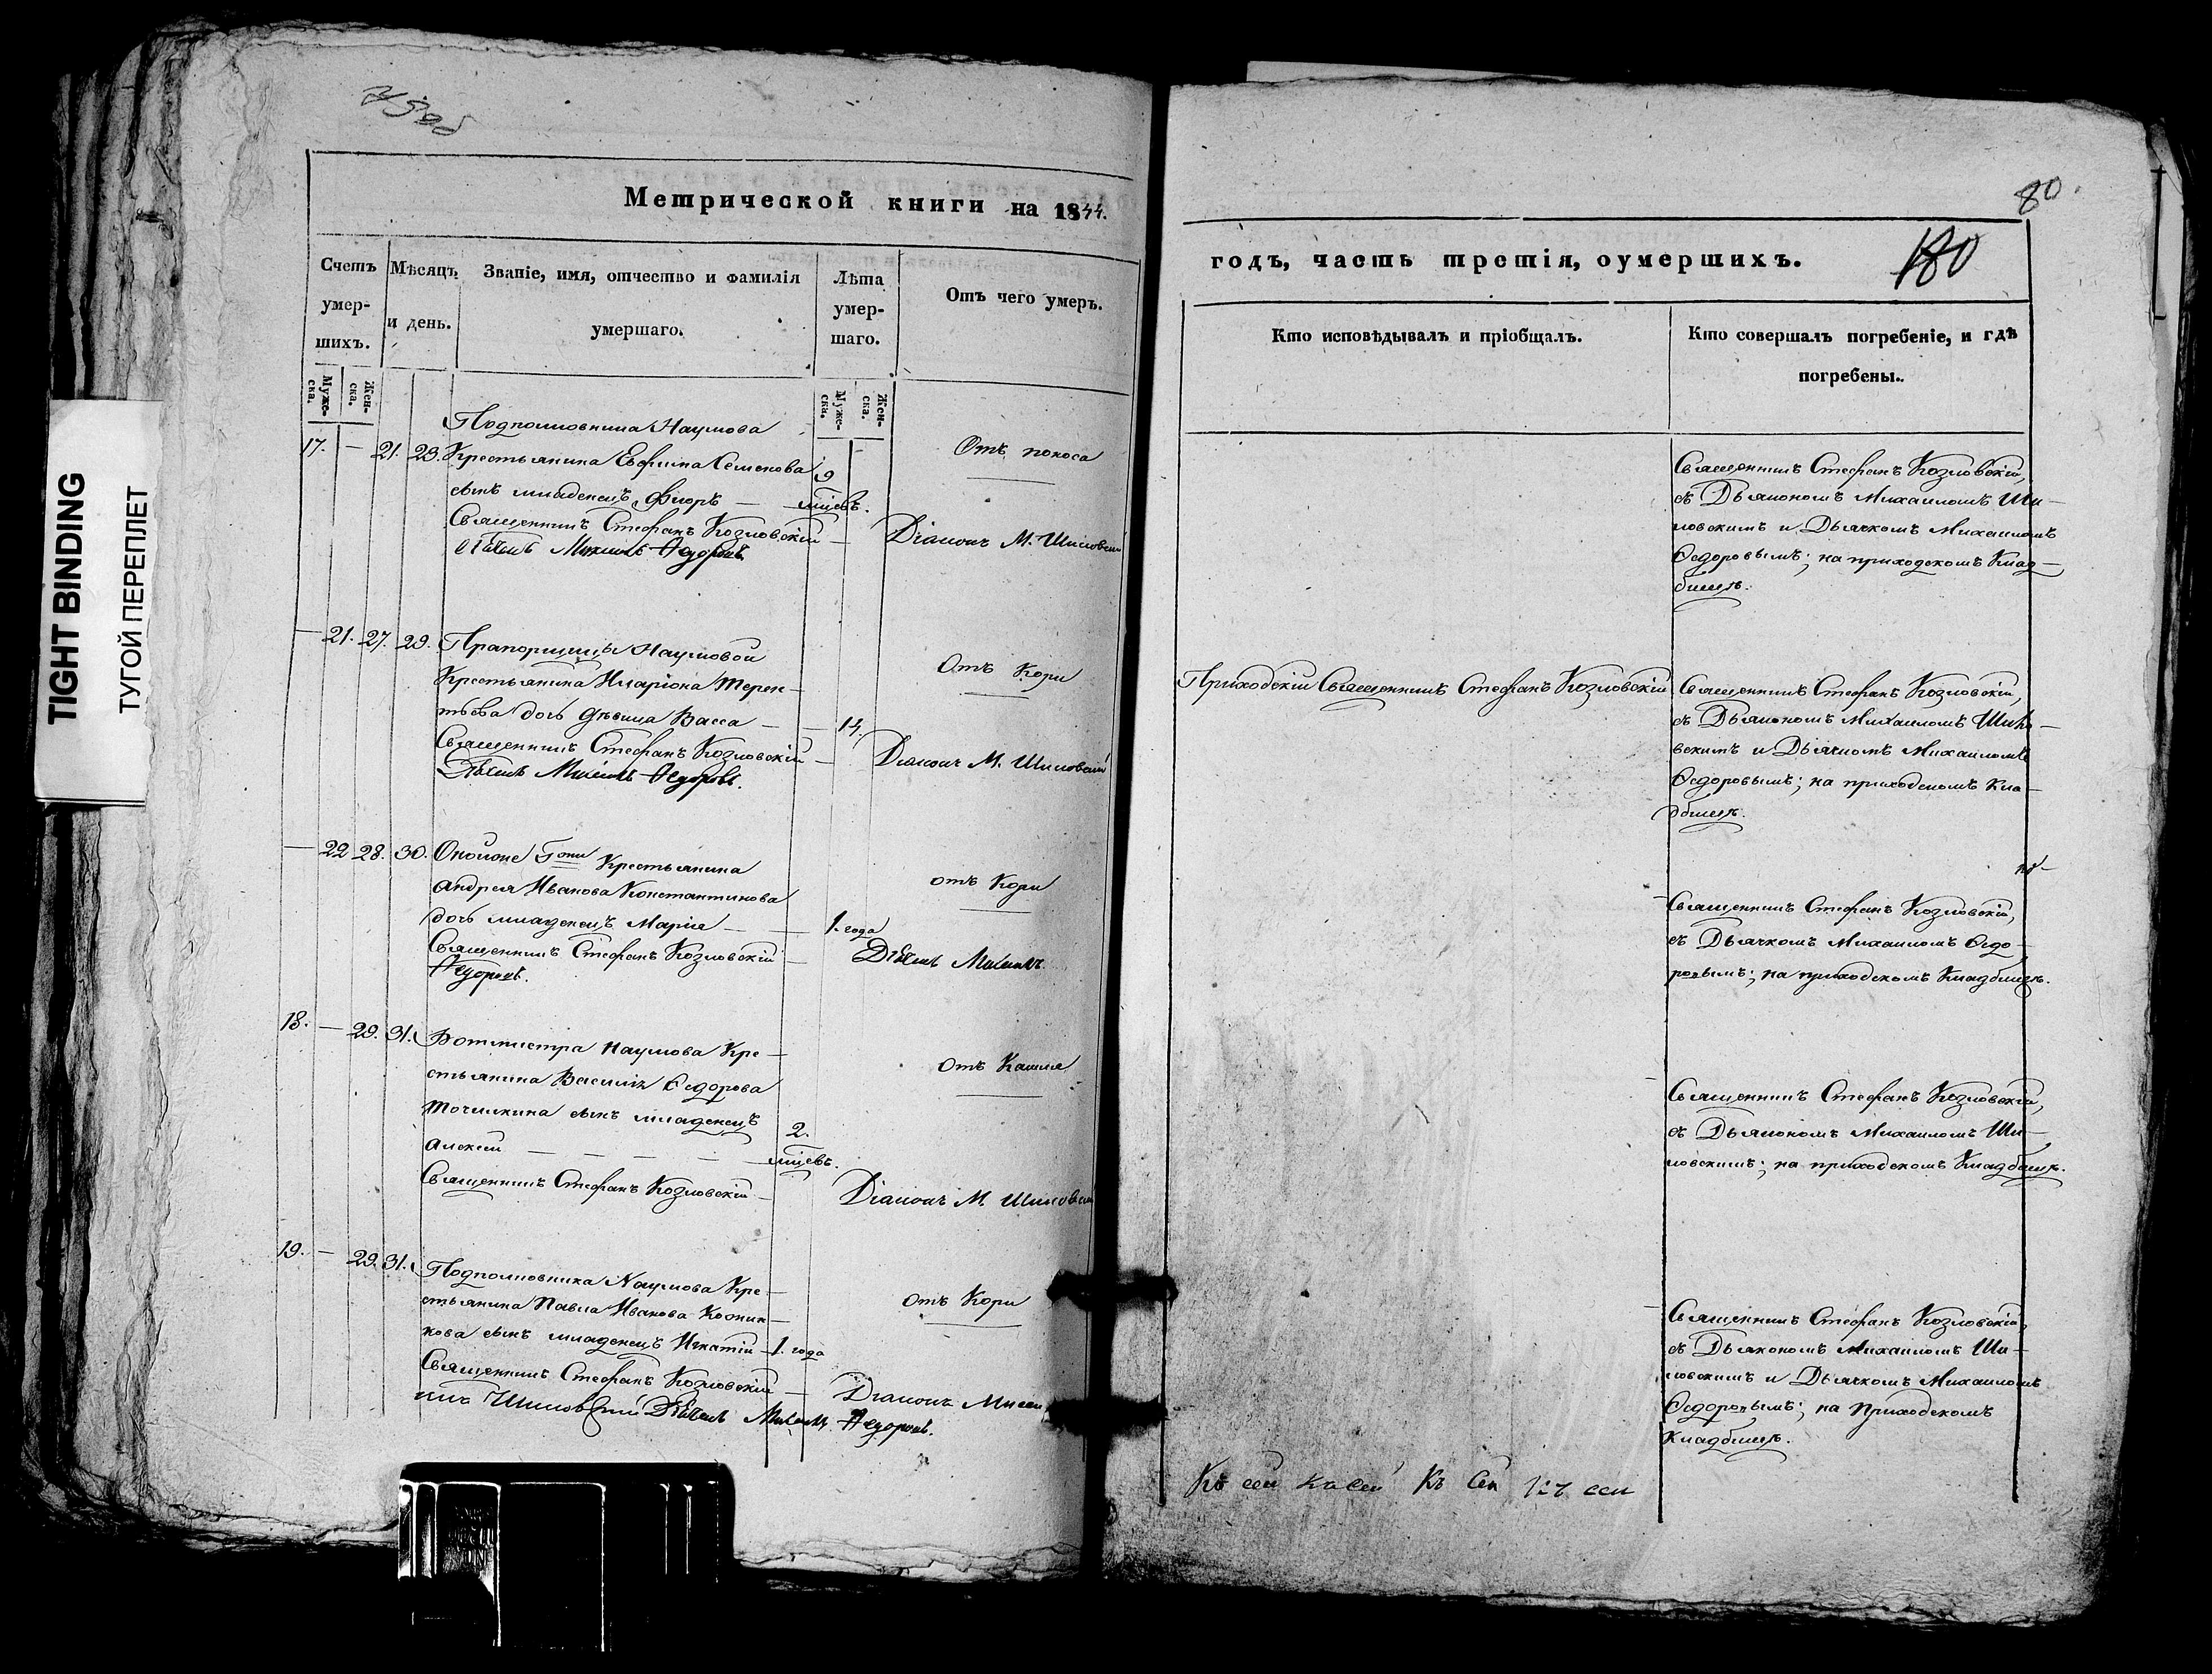 TIGHT BINDING
ТУГОЙ ПЕРЕПЛЕТ
Метрической книги на 1844.
Счетъ умер-шихъ.
Муже-ска.
Жен-ска.
Мѣсяцъ и день.
Званіе, имя, отчество и фамилія умершаго.
Лѣта умер-шаго.
Муже-ска.
Жен-ска.
Отъ чего умеръ.
Подполковника Наумова
17. — 21. 23. Крестьянина Ефима Семенова 9
сынъ младенецъ Флоръ — мцевъ.
Отъ поноса
Священникъ Стефанъ Козловскій — Діаконъ М. Шиловскій
Дьячекъ Михаилъ Федоровъ
— 21. 27. 29. Прапорщицы Наумовой
Крестьянина Иларіона Терен-
тьева дочь дѣвица Васса — — 14.
Отъ Кори
Священникъ Стефанъ Козловскій — Діаконъ М. Шиловскій
Дьячекъ Михаилъ Федоровъ.
— 22 28. 30. Крестьянина
Андрея Иванова Константинова
дочь младенецъ Марія — — 1. года
отъ Кори
Священникъ Стефанъ Козловскій — Дьячекъ Михаилъ
Федоровъ.
18. — 29. 31. Ротмистра Наумова Кре-
стьянина Василія Федорова
Точилкина сынъ младенецъ 2.
Алексей — — — — — мцевъ.
Отъ Кашля
Священникъ Стефанъ Козловскій — Діаконъ М. Шиловскій
19. — 29. 31. Подполковника Наумова Кре-
стьянина Павла Иванова
сынъ младенецъ Игнатій — 1. года
отъ Кори
Священникъ Стефанъ Козловскій — Діаконъ Михаи
илъ Шиловскій Дьячекъ Михаилъ Федоровъ.
80.
годъ, часть третія, оумершихъ.
180
Кто исповѣдывалъ и пріобщалъ.
Кто совершалъ погребеніе, и гдѣ
погребены.
Священникъ Стефанъ Козловскій,
съ Дьякономъ Михаиломъ Ши-
ловскимъ и Дьячкомъ Михаиломъ
Федоровымъ; на приходскомъ Клад-
бищѣ.
Приходскій Священникъ Стефанъ Козловскій
Священникъ Стефанъ Козловскій,
съ Дьякономъ Михаиломъ Шило-
вскимъ и Дьячкомъ Михаиломъ
Федоровымъ; на приходскомъ Кла-
дбищѣ.
Священникъ Стефанъ Козловскій,
съ Дьячкомъ Михаиломъ Федо-
ровымъ; на приходскомъ Кладбищѣ.
Священникъ Стефанъ Козловскій,
съ Дьякономъ Михаиломъ Ши-
ловскимъ; на приходскомъ Кладбищѣ.
Священникъ Стефанъ Козловскій,
съ Дьякономъ Михаиломъ Ши-
ловскимъ и Дьячкомъ Михаиломъ
Федоровымъ; на Приходскомъ
Кладбищѣ.
Къ сей